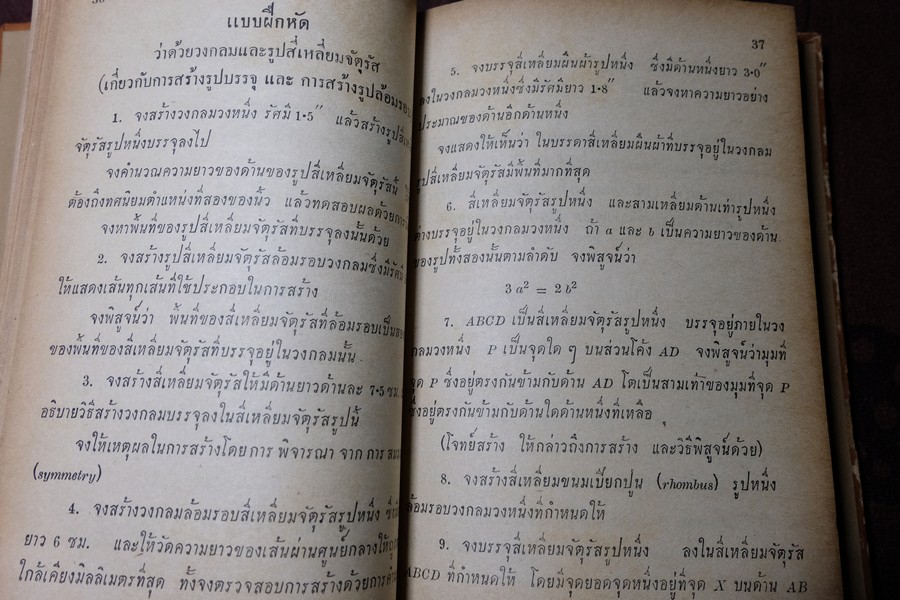 แบบฝึกหัด
ว่าด้วยวงกลมและรูปสี่เหลี่ยมจัตุรัส
(เกี่ยวกับการสร้างรูปบรรจุ และ การสร้างรูปล้อมรอบ
1. จงสร้างวงกลมวงหนึ่ง รัศมี 1·5″ แล้วสร้างรูป
จัตุรัสรูปหนึ่งบรรจุลงไป
จงคำนวณความยาวของด้านของรูปสี่เหลี่ยมจัตุรัสนี้
ต้องถึงทศนิยมตำแหน่งที่สองของนิ้ว แล้วทดสอบผลด้วย
จงหาพื้นที่ของรูปสี่เหลี่ยมจัตุรัสที่บรรจุลงนั้นด้วย
2. จงสร้างรูปสี่เหลี่ยมจัตุรัสล้อมรอบวงกลมซึ่งมีรัศมี
ให้แสดงเส้นทุกเส้นที่ใช้ประกอบในการสร้าง
จงพิสูจน์ว่า พื้นที่ของสี่เหลี่ยมจัตุรัสที่ล้อมรอบเป็น
ของพื้นที่ของสี่เหลี่ยมจัตุรัสที่บรรจุอยู่ในวงกลมนั้น
3. จงสร้างสี่เหลี่ยมจัตุรัสให้มีด้านยาวด้านละ 7·5 ซม.
อธิบายวิธีสร้างวงกลมบรรจุลงในสี่เหลี่ยมจัตุรัสรูปนี้
จงให้เหตุผลในการสร้างโดยการ พิจารณา จาก การ
(symmetry)
4. จงสร้างวงกลมล้อมรอบสี่เหลี่ยมจัตุรัสรูปหนึ่ง
ยาว 6 ซม. และให้วัดความยาวของเส้นผ่านศูนย์กลางให้
ใกล้เคียงมิลลิเมตรที่สุด ทั้งจงตรวจสอบการสร้างด้วยการ
37
5. จงบรรจุสี่เหลี่ยมผืนผ้ารูปหนึ่ง ซึ่งมีด้านหนึ่งยาว 3·0″
ลงในวงกลมวงหนึ่งซึ่งมีรัศมียาว 1·8″ แล้วจงหาความยาวอย่าง
ประมาณของด้านอีกด้านหนึ่ง
จงแสดงให้เห็นว่า ในบรรดาสี่เหลี่ยมผืนผ้าที่บรรจุอยู่ในวงกลม
รูปสี่เหลี่ยมจัตุรัสมีพื้นที่มากที่สุด
6. สี่เหลี่ยมจัตุรัสรูปหนึ่ง และสามเหลี่ยมด้านเท่ารูปหนึ่ง
ต่างบรรจุอยู่ในวงกลมวงหนึ่ง ถ้า a และ b เป็นความยาวของด้าน
ของรูปทั้งสองนั้นตามลำดับ จงพิสูจน์ว่า
3 a² = 2 b²
7. ABCD เป็นสี่เหลี่ยมจัตุรัสรูปหนึ่ง บรรจุอยู่ภายในวง
กลมวงหนึ่ง P เป็นจุดใด ๆ บนส่วนโค้ง AD จงพิสูจน์ว่ามุมที่
จุด P ซึ่งอยู่ตรงกันข้ามกับด้าน AD โตเป็นสามเท่าของมุมที่จุด P
ซึ่งอยู่ตรงกันข้ามกับด้านใดด้านหนึ่งที่เหลือ
(โจทย์สร้าง ให้กล่าวถึงการสร้าง และวิธีพิสูจน์ด้วย)
8. จงสร้างสี่เหลี่ยมขนมเปียกปูน (rhombus) รูปหนึ่ง
ล้อมรอบวงกลมวงหนึ่งที่กำหนดให้
9. จงบรรจุสี่เหลี่ยมจัตุรัสรูปหนึ่ง ลงในสี่เหลี่ยมจัตุรัส
ABCD ที่กำหนดให้ โดยมีจุดยอดจุดหนึ่งอยู่ที่จุด X บนด้าน AB